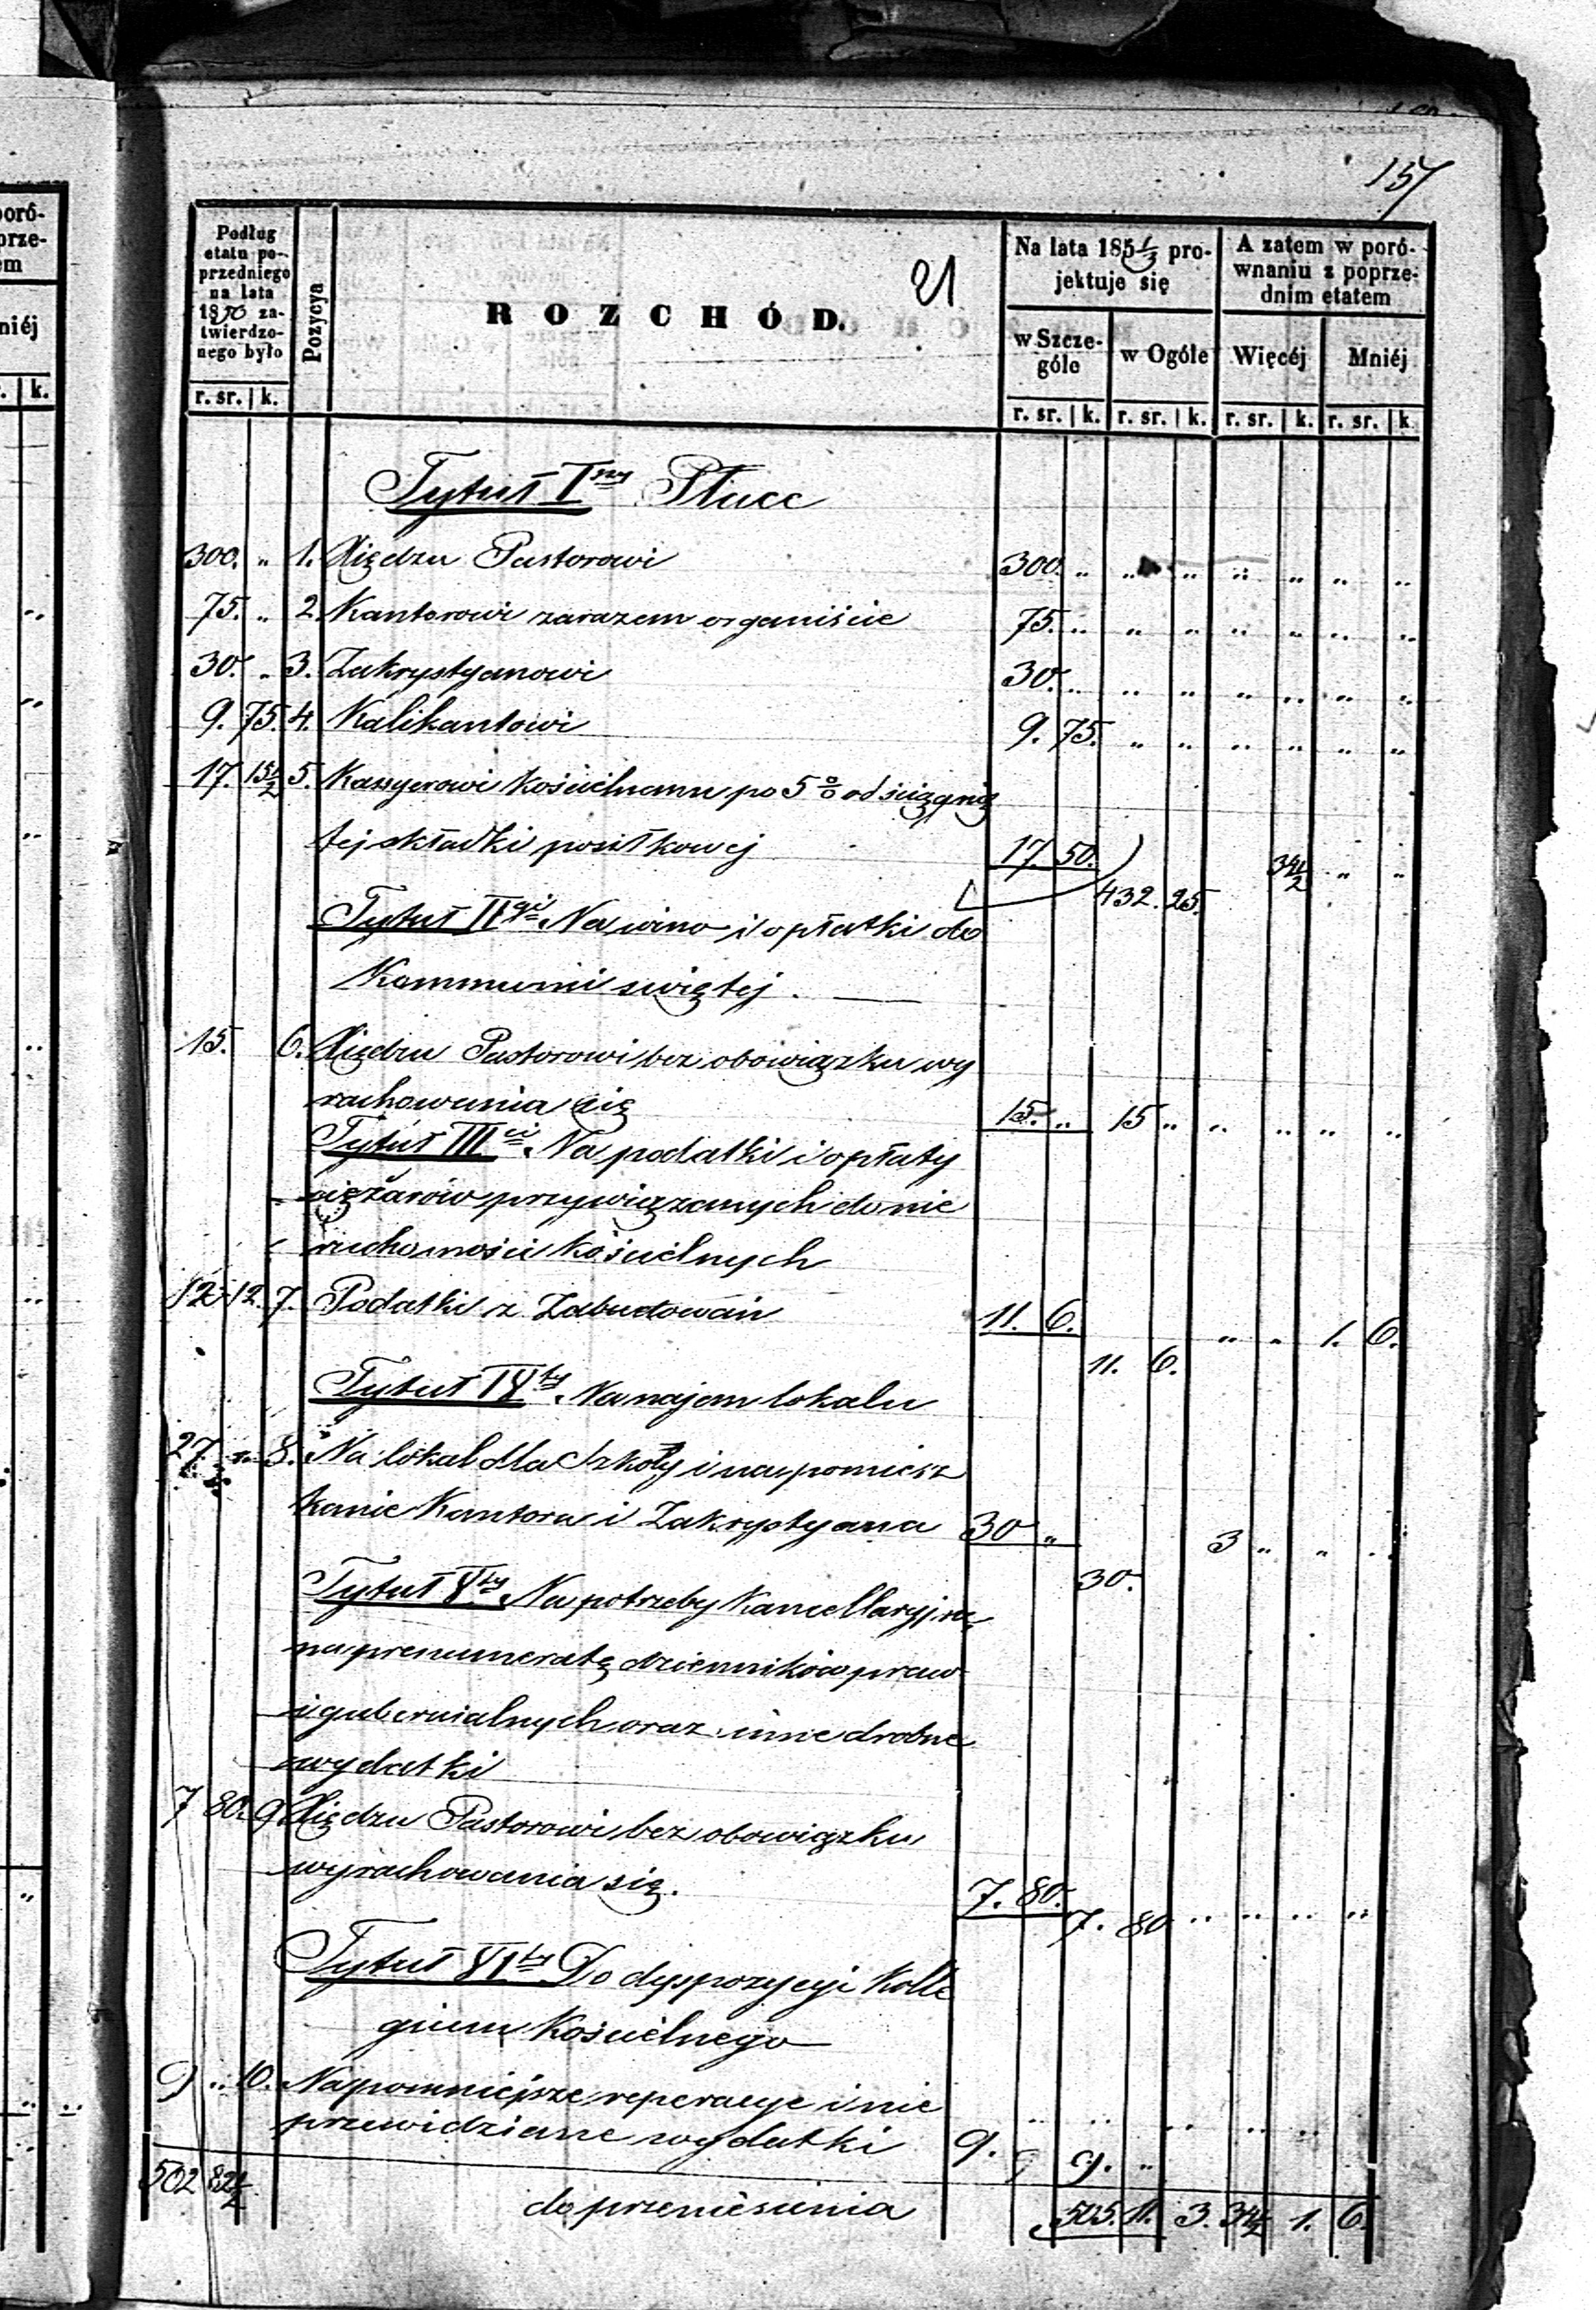 157
21
Podług etatu po-
przedniego
na lata
1850 za-
twierdzo-
nego było
Pozycya
ROZCHÓD.
Na lata 185 1/3 pro-
jektuje się
A zatem w poró-
wnaniu z poprze-
dnim etatem
w Szcze-
góle
w Ogóle
Więcéj
Mniéj
r. sr. k. r. sr. k. r. sr. k. r. sr. k. r. sr. k.
Tytuł Iszy Płace
300. „ 1. Xiędzu Pastorowi 300. „ „ „ „ „ „ „
75. „ 2. Kantorowi zarazem organiście 75. „ „ „ „ „ „ „
30. „ 3. Zakrystyanowi 30. „ „ „ „ „ „ „
9. 75. 4. Kalikantowi 9. 75. „ „ „ „ „ „
17. 15 1/2 5. Kassyerowi Kościelnemu po 5 % od ściągnię
tej składki posiłkowej 17. 50. 34 1/2 „ „
432. 25.
Tytuł IIgi Na wino i opłatki do
Kommunii swiętej.
15. 6. Xiędzu Pastorowi bez obowiązku wy
rachowania się 15. „ 15 „ „ „ „ „
Tytuł IIIci Na podatki i opłaty
ciężarów przywiązanych do nie
ruchomości Kościelnych
12. 12. 7. Podatki z Zabudowań 11. 6. „ „ 1. 6.
11. 6.
Tytuł IVty Na najem lokalu
27 „ 8. Na lokal dla Szkoły i na pomiesz
kanie Kantora i Zakrystyana 30 „ 3 „ „ „
30.
Tytuł Vty Na potrzeby Kancellaryjne
na prenumeratę dzienników praw
i gubernialnych oraz inne drobne
wydatki
7 80. 9. Xiędzu Pastorowi bez obowiązku
wyrachowania się. 7. 80. 7. 80 „ „ „ „
Tytuł VIty Do dyspozycyi Kolle
gium Kościelnego
9 „ 10. Na pomniejsze reperacye i nie
przewidziane wydatki 9. „ 9. „ „ „ „ „
502 82 1/2 do przeniesienia 505. 11. 3. 34 1/2 1. 6.